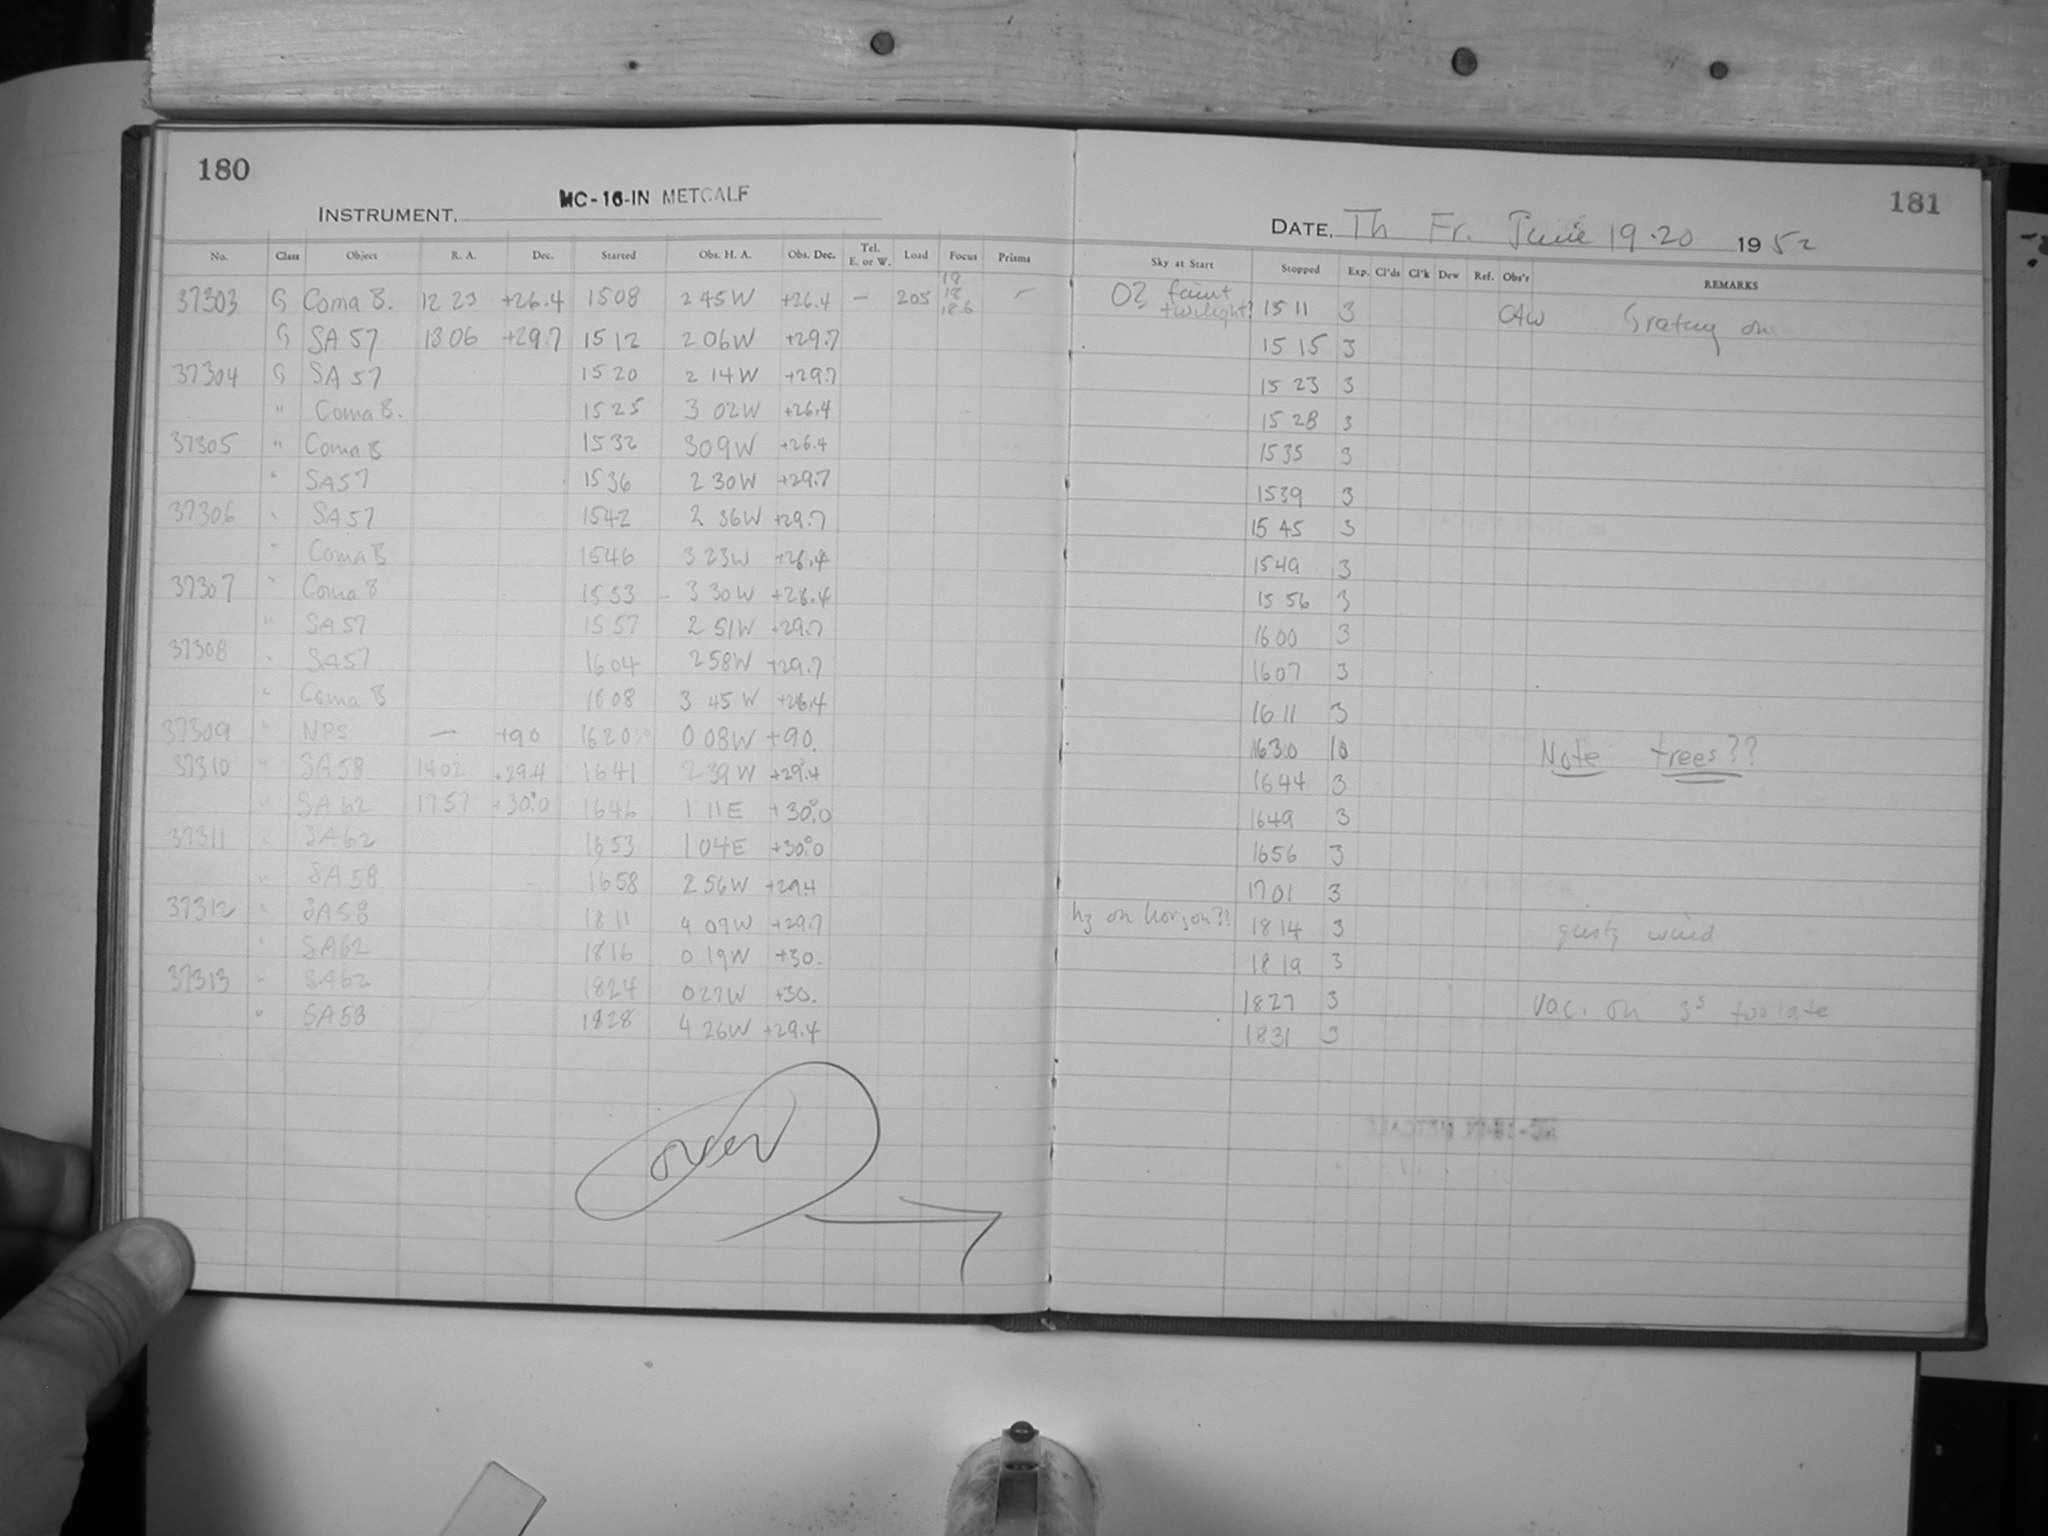 180
INSTRUMENT. MC-16-IN METCALF
No. Class Object R. A. Dec. Started Obs. H. A. Obs. Dec. Tel. E. or W. Load Focus Prisms
37303 G Coma B. 12 23 +26.4 1508 2 45W +26.4 — 205 18 18 18.6 –
G SA 57 13 06 +29.7 1512 2 06W +29.7
37304 G SA 57 1520 2 14W +29.7
" Coma B. 1525 3 02W +26.4
37305 " Coma B 1532 3 09W +26.4
" SA57 1536 2 30W +29.7
37306 " SA57 1542 2 36W +29.7
" Coma B 1546 3 23W +26.4
37307 " Coma B 1553 3 30W +26.4
" SA57 1557 2 51W +29.7
37308 " SA57 1604 2 58W +29.7
" Coma B 1608 3 45W +26.4
37309 " NPS — +90 1620 0 08W +90.
37310 " SA58 1402 +29.4 1641 2 39W +29.4
" SA62 1757 +30.0 1646 1 11E +30.0
37311 " SA62 1653 1 04E +30.0
" SA58 1658 2 56W +29.4
37312 " SA58 1811 4 09W +29.7
" SA62 1816 0 19W +30.
37313 " SA62 1824 0 27W +30.
" SA58 1828 4 26W +29.4
over
181
DATE. Th Fr. June 19.20 1952
Sky at Start Stopped Exp. Cl'ds Cl'k Dew Ref. Obs'r REMARKS
02 faint twilight? 15 11 3 Grating on
15 15 3
15 23 3
15 28 3
1535 3
1539 3
15 45 3
1549 3
15 56 3
1600 3
1607 3
1611 3
1630 10 Note trees??
1644 3
1649 3
1656 3
1701 3
hz on horizon?? 1814 3 gusty wind
1819 3
1827 3 Vac. on 3s too late
1831 3